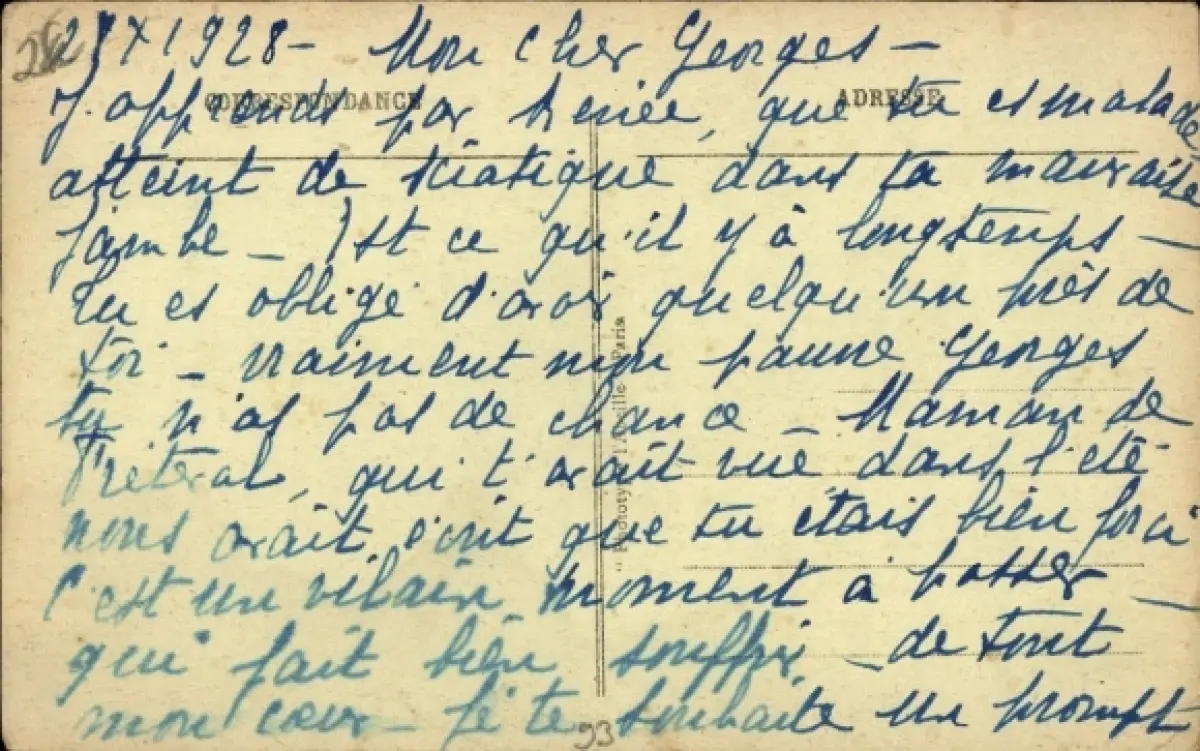 28 2/X 1928 - Mon cher Georges -
CORRESPONDANCE ADRESSE
J'apprends par Renée, que tu es malade,
atteint de sciatique dans ta mauvaise
jambe - Est ce qu'il y à longtemps -
tu es obligé d'avoir quelqu'un près de
toi - vraiment mon pauvre Georges
tu n'as pas de chance - Maman de
Fréteval, qui t'avait vue dans l'été
nous avait écrit que tu étais bien
C'est un vilain moment à passer -
qui fait bien souffrir - de tout
mon cœur - je te souhaite un prompt
Paris
93